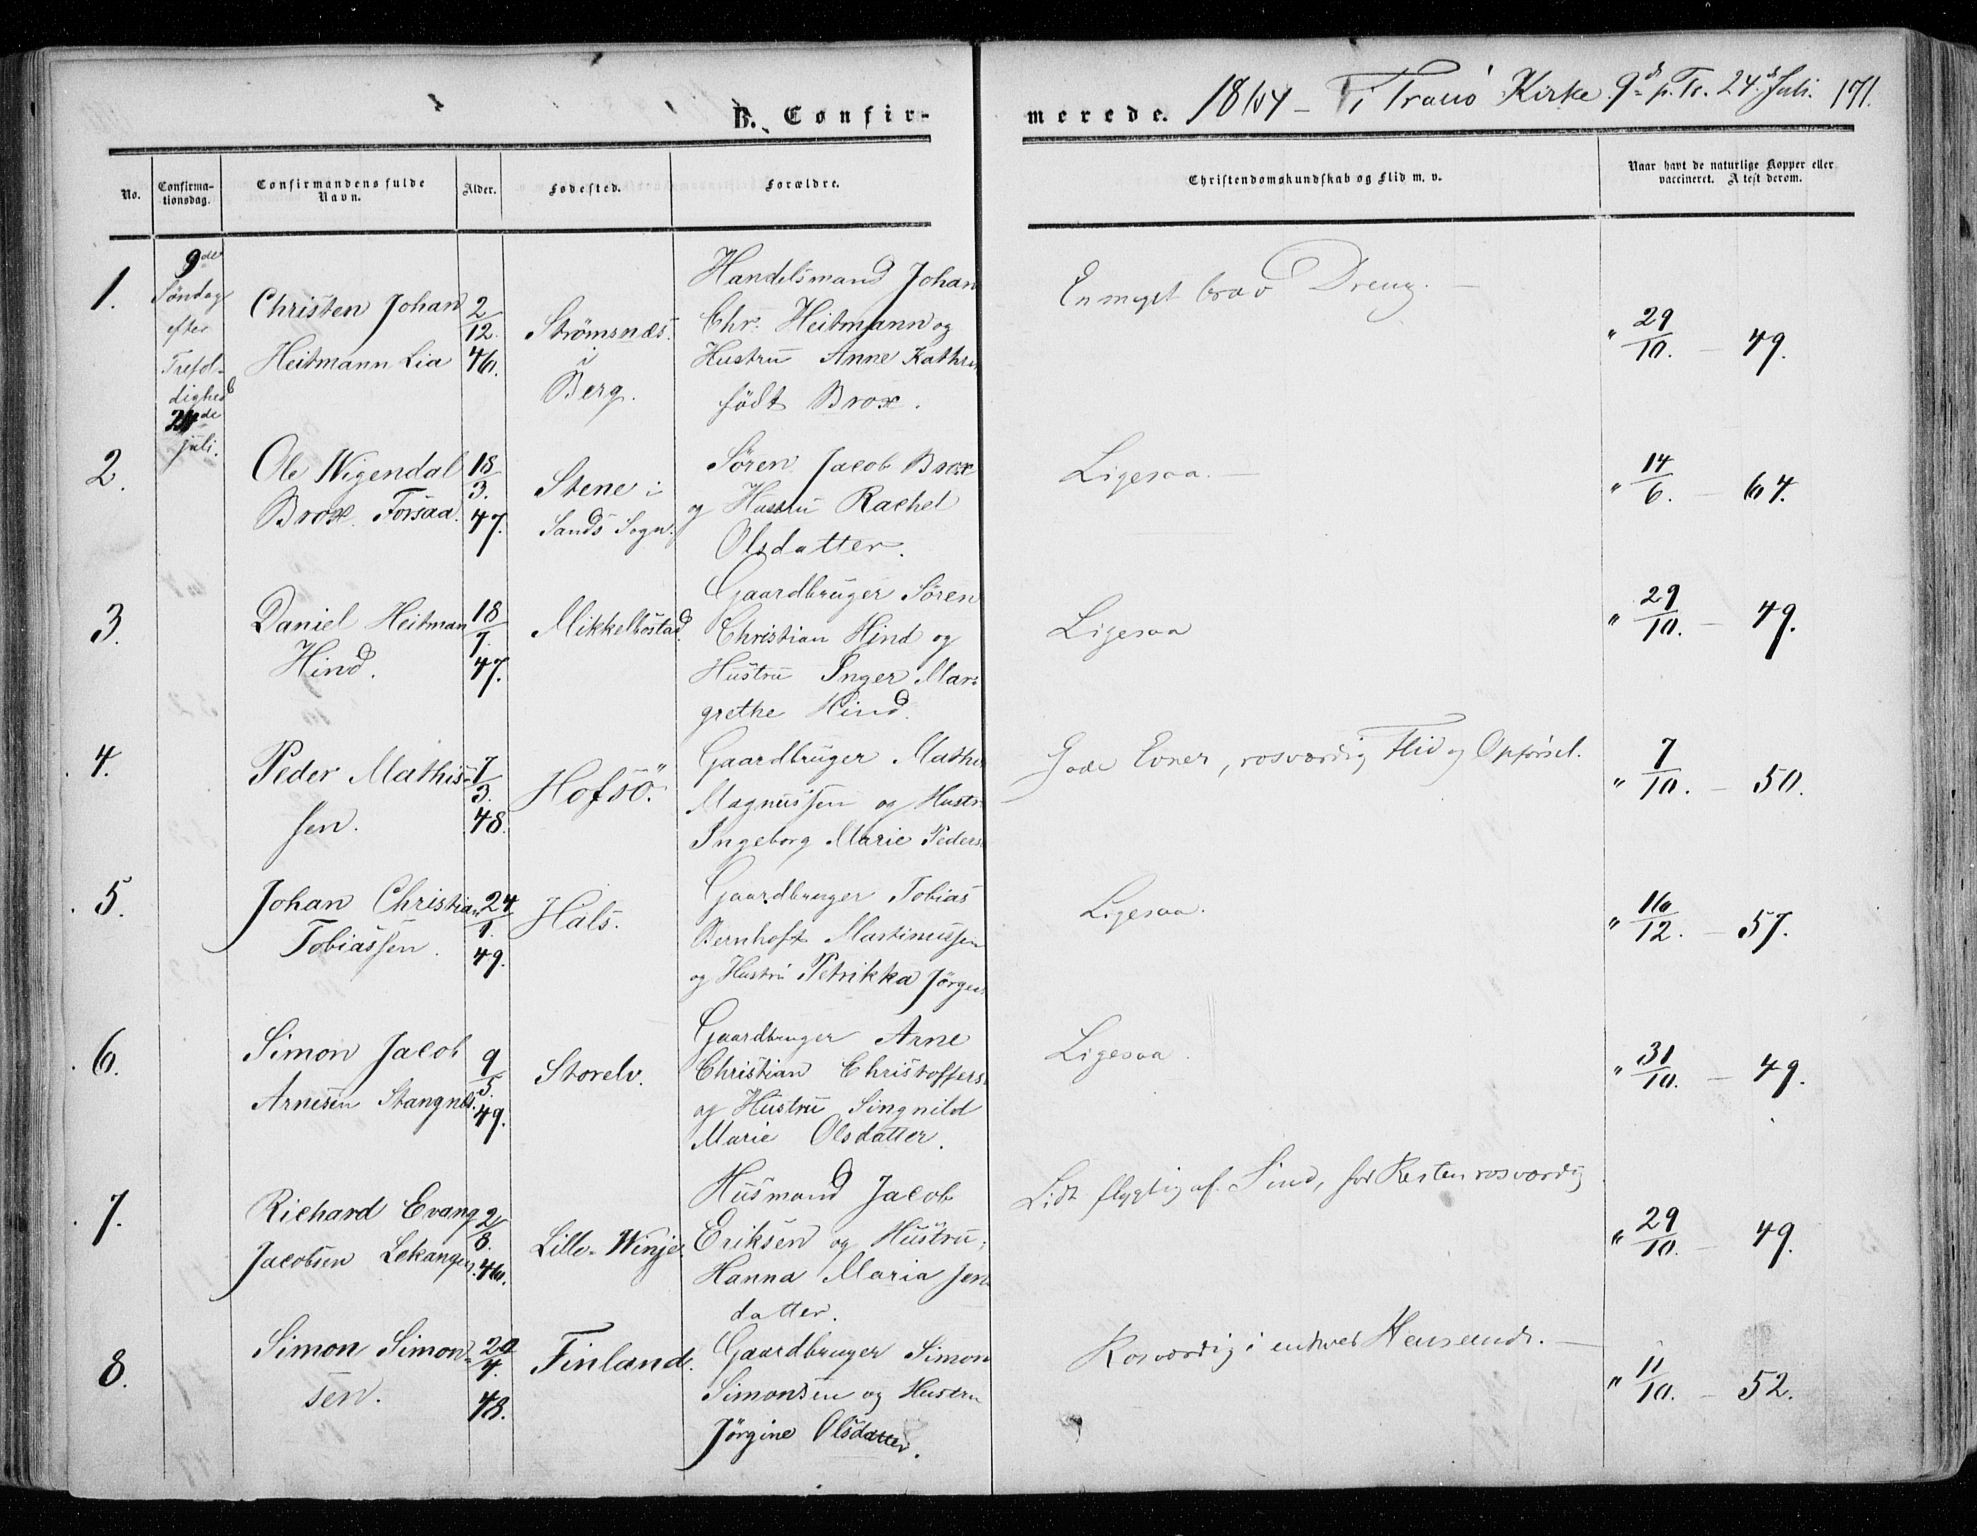 B. Confir-
merede. 1864 – I Tranö Kirke 9de p. Tr. 24de Juli. 171.
No.
Confirma-
tionsdag.
Confirmandens fulde
Navn.
Alder.
Fødested.
Forældre.
Christendomskundskab og Flid m. v.
Naar havt de naturlige Kopper eller
vaccineret. Attest derom.
1.
9de
Søndag
efter
Trefol-
dighed
24de
Juli.
Christen Johan
Heitmann Lia
2/12.
46.
Strömsnæs.
i
Berg.
Handelsmand Johan
Chr. Heitmann og
Hustru Anne Kathri
födt Brox.
En meget brav Dreng. —
" 29/10. — 49.
2.
Ole Wigendal
Brox Forsaa.
18/3.
47.
Stene i
Sands Sogn.
Søren Jacob Brox
og Hustru Rachel
Olsdatter.
Ligesaa. —
" 14/6. — 64.
3.
Daniel Heitman
Hind.
18/7.
47.
Mikkelbostad.
Gaardbruger Søren
Christian Hind og
Hustru Inger Mar-
grethe Hind.
Ligesaa
" 29/10. — 49.
4.
Peder Mathis-
sen.
7/3.
48.
Hofsö.
Gaardbruger Mathi
Magnussen og Hustr
Ingeborg Marie Peders
Gode Evner, rosværdig Flid og Opförsel.
" 7/10. — 50.
5.
Johan Christian
Tobiassen.
24/1.
49.
Hals.
Gaardbruger Tobias
Bernhoft Martinussen
og Hustru Petrikka Jörgen
Ligesaa.
" 16/12. — 57.
6.
Simon Jacob
Arnesen Stangnes.
9/5.
49.
Storelv.
Gaardbruger Arne
Christian Christoffers
og Hustru Singnild
Marie Olsdatter.
Ligesaa.
" 31/10. — 49.
7.
Richard Evang
Jacobsen Lekangen.
2/8.
46.
Lille-Winje.
Husmand Jacob
Eriksen og Hustru
Hanna Maria Jen
datter.
Lidt flygtig af Sind, for Resten rosværdig
" 29/10. — 49.
8.
Simon Simon-
sen.
20/4.
48.
Finland.
Gaardbruger Simon
Simonsen og Hustru
Jörgine Olsdatter.
Rosværdig i enhver Henseende. —
" 11/10. — 52.